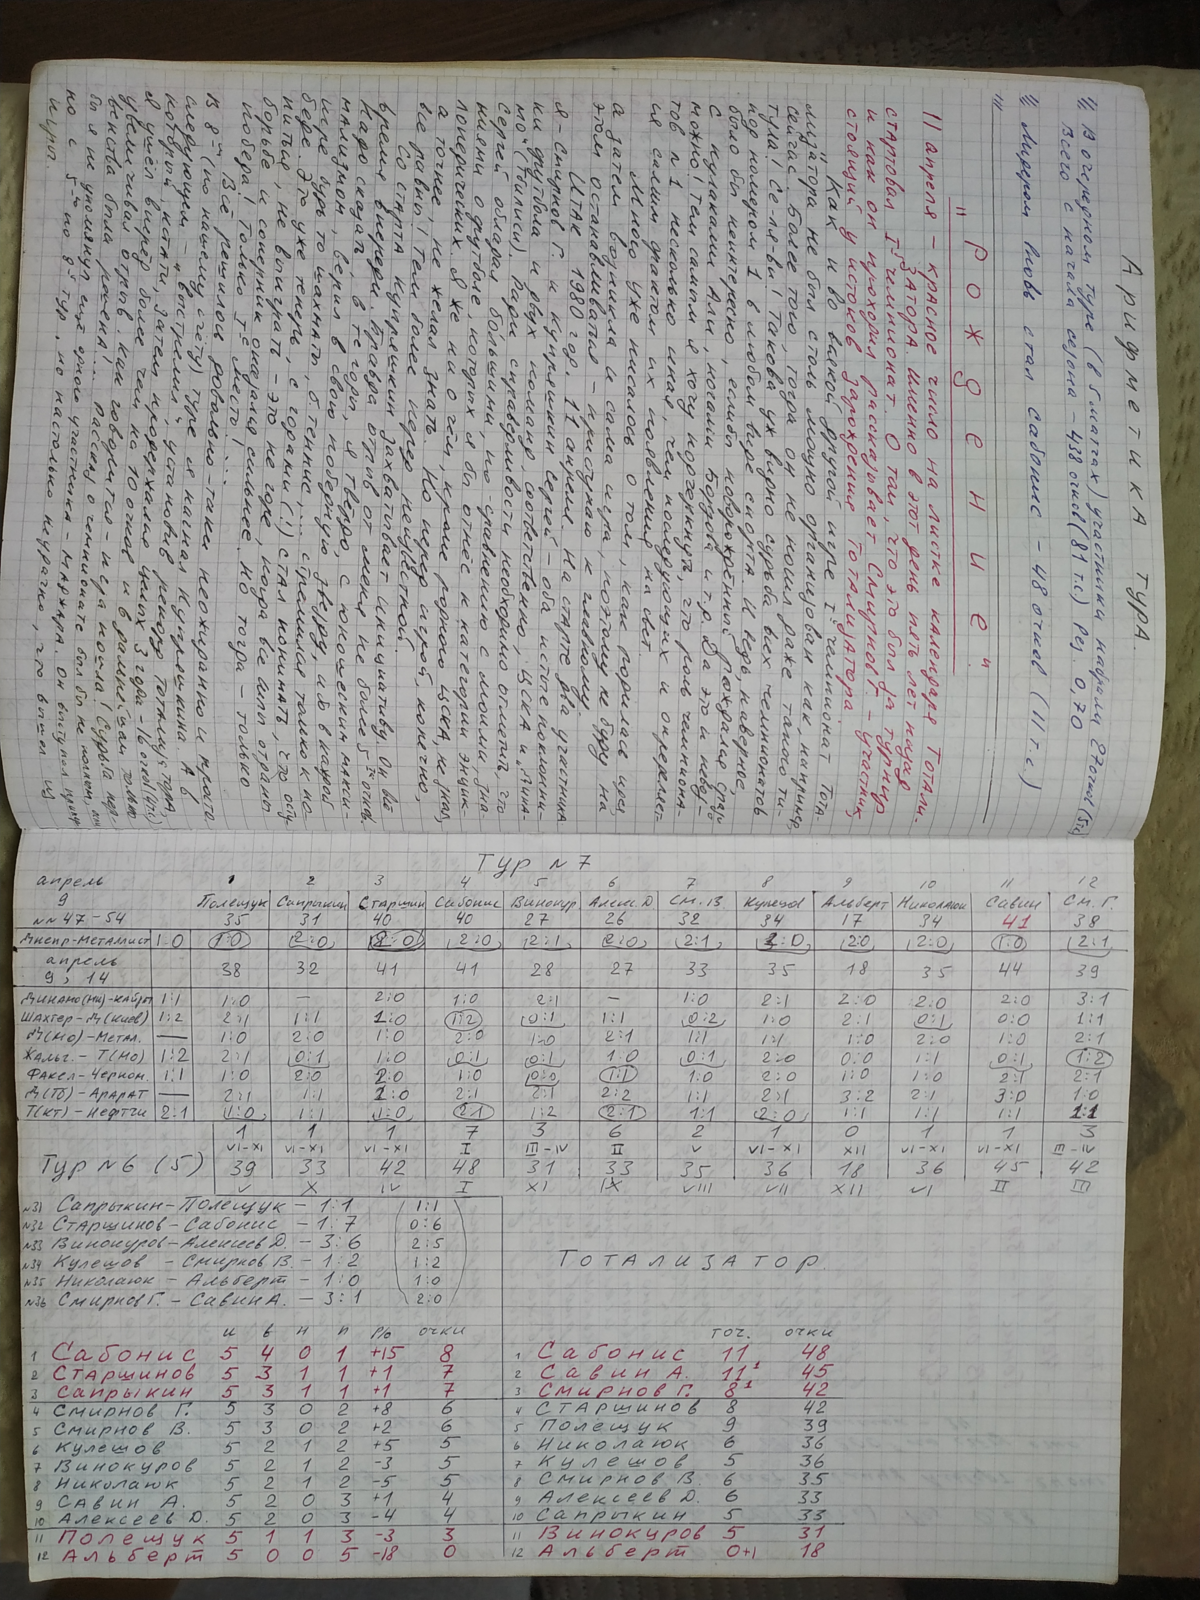 Арифметика тура.
1/ В очередном туре (в 8 матчах) участники набрали 27 очков (5 т.с.)
Всего с начала сезона - 438 очков (81 т.с.) Рез. 0,70
2/ Лидером вновь стал Сабонис - 48 очков (11 т.с.)
"Рождение"
11 апреля - красное число на листке календаря Тотали-
затора. Именно в этот день пять лет назад
стартовал 1й чемпионат. О том, что это был за турнир
и как он проходил рассказывает Смирнов Г. - участник,
стоящий у истоков зарождения Тотализатора.
"Как и во всякой другой игре 1й чемпионат Тота-
лизатора не был столь мощно организован как, например,
сейчас. Более того, тогда он не носил даже такого ти-
тула! Се-ля-ви! Такова уж видно судьба всех чемпионатов
под номером 1 в любом виде спорта. И ведь, наверное,
было бы неинтересно, если б новорожденный рождался сразу
с кулаками Али, ногами Бордова и т.д. Да это и невоз-
можно! Тем самым я хочу подчеркнуть, что роль чемпиона-
тов №1 несколько иная, чем последующих и определяет-
ся самим фактом их появления на свет.
Много уже писалось о том, как родилась идея,
а затем возникла и сама игра, поэтому не буду на
этом останавливаться - приступаю к главному.
Итак 1980 год. 11 апреля. На старте два участника:
я - Смирнов Г. и Купряшкин Сергей - оба истые поклонни-
ки футбола и двух команд, соответственно, ЦСКА и "Дина-
мо" (Тбилиси). Ради справедливости необходимо отметить, что
Сергей обладал большими, по сравнению с моими зна-
ниями о футболе, которых я бы отнёс к категории энцик-
лопедических. Я же ни о чём, кроме родного ЦСКА, не знал,
а точнее, и не желал знать. Но перед игрой, конечно,
все равны! Тем более перед неизвестной.
Со старта Купряшкин захватывает инициативу. Он всё
время впереди. Правда отрыв от меня не более 5ти очков.
Надо сказать, в те годы, я твёрдо, с юношеским макси-
мализмом, верил в свою победную звезду, и в каждой
игре, будь то шахматы, б. теннис... стремился только к по-
беде. Это уже теперь, с годами (!) стал понимать, что осту-
питься, не выиграть - это не горе, когда все силы отданы
борьбе и соперник оказался сильнее. Но тогда - только
победа! Только 1е место!
Всё решилось довольно-таки неожиданно и просто.
В 8м (по нашему счёту) туре я нагнал Купряшкина. А в
следующем - "выстрелил", установив рекорд тотализатора,
который, кстати, затем продержался целых 3 года - 16 очков (4 т.с.)
Я ушёл вперёд более чем на 10 очков и в дальнейшем только
увеличивал отрыв. Как говорится - игра пошла! Судьба пер-
венства была решена!... Рассказ о чемпионате был бы не полным, если
бы я не упомянул ещё одного участника - Маджара. Он выступал, правда,
но с 5го по 8й тур, но настолько неудачно, что вышел из
игры.
Тур №7
апрель 1 2 3 4 5 6 7 8 9 10 11 12
9 Полещук Сапрыкин Старшин Сабонис Винокур Алекс.Д См. В Кулешов Альберт Николаюк Савин См. Г.
№№ 47-54 35 31 40 40 27 26 32 34 17 34 41 38
Днепр-Металлист 1:0 1:0 2:0 2:0 2:0 2:1 2:0 2:1 2:0 2:0 2:0 1:0 2:1
апрель 9, 14 38 32 41 41 28 27 33 35 18 35 44 39
Динамо(Мн)-Кайрат 1:1 1:0 — 2:0 1:0 2:1 — 1:0 2:1 2:0 2:0 2:0 3:1
Шахтер-Д(Киев) 1:2 2:1 1:1 1:0 1:2 0:1 1:1 0:2 1:0 2:1 0:1 0:0 1:1
Д(Мо)-Метал. — 1:0 2:0 1:0 2:0 1:0 2:1 1:1 1:1 1:0 2:0 1:0 2:1
Жальг.-Т(Мо) 1:2 2:1 0:1 1:0 0:1 0:1 1:0 0:1 2:0 0:0 1:1 0:1 1:2
Факел-Черном. 1:1 1:0 2:0 2:0 1:0 0:0 1:1 1:0 2:0 1:0 1:0 2:1 2:1
Д(Тб)-Арарат — 2:1 1:1 2:0 2:1 2:1 2:2 1:1 2:1 3:2 2:1 3:0 1:0
Т(Кт)-Нефтчи 2:1 1:0 1:1 1:0 2:1 1:2 2:1 1:1 2:0 1:1 1:1 1:1 1:1
1 1 1 7 3 6 2 1 0 1 1 3
VI-XI VI-XI VI-XI I III-IV II V VI-XI XII VI-XI VI-XI III-IV
Тур №6 (5) 39 33 42 48 31 33 35 36 18 36 45 42
V X IV I XI IX VIII VII XII VI II III
№31 Сапрыкин-Полещук - 1:1 (1:1)
№32 Старшинов-Сабонис - 1:7 (0:6)
№33 Винокуров-Алексеев Д. - 3:6 (2:5)
№34 Кулешов - Смирнов В. - 1:2 (1:2)
№35 Николаюк - Альберт - 1:0 (1:0)
№36 Смирнов Г. - Савин А. - 3:1 (2:0)
Тотализатор.
и в н п р/о очки
1 Сабонис 5 4 0 1 +15 8
2 Старшинов 5 3 1 1 +1 7
3 Сапрыкин 5 3 1 1 +1 7
4 Смирнов Г. 5 3 0 2 +8 6
5 Смирнов В. 5 3 0 2 +2 6
6 Кулешов 5 2 1 2 +5 5
7 Винокуров 5 2 1 2 -3 5
8 Николаюк 5 2 1 2 -5 5
9 Савин А. 5 2 0 3 +1 4
10 Алексеев Д. 5 2 0 3 -4 4
11 Полещук 5 1 1 3 -3 3
12 Альберт 5 0 0 5 -18 0
точ. очки
1 Сабонис 11 48
2 Савин А. 11¹ 45
3 Смирнов Г. 8¹ 42
4 Старшинов 8 42
5 Полещук 9 39
6 Николаюк 6 36
7 Кулешов 5 36
8 Смирнов В. 6 35
9 Алексеев Д. 6 33
10 Сапрыкин 5 33
11 Винокуров 5 31
12 Альберт 0+1 18